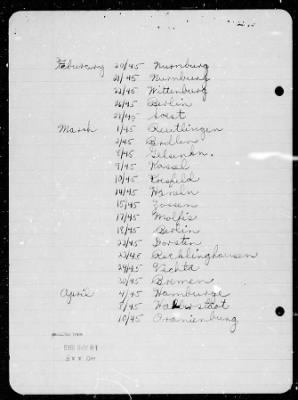 Feburary 20/45 Nurnburg
21/45 Nurnburg
22/45 Wittenburg
26/45 Berlin
28/45 Soest
March 1/45 Reutlingen
2/45
8/45 Gelsenkn.
9/45 Kassel
10/45 Koesfeld
14/45 Hameln
15/45 Zossen
17/45 Molfis
18/45 Berlin
22/45 Dorsten
23/45 Recklinghausen
24/45 Vechta
30/45 Bremen
April 4/45 Hamburge
8/45 Halberstadt
10/45 Oranienburg